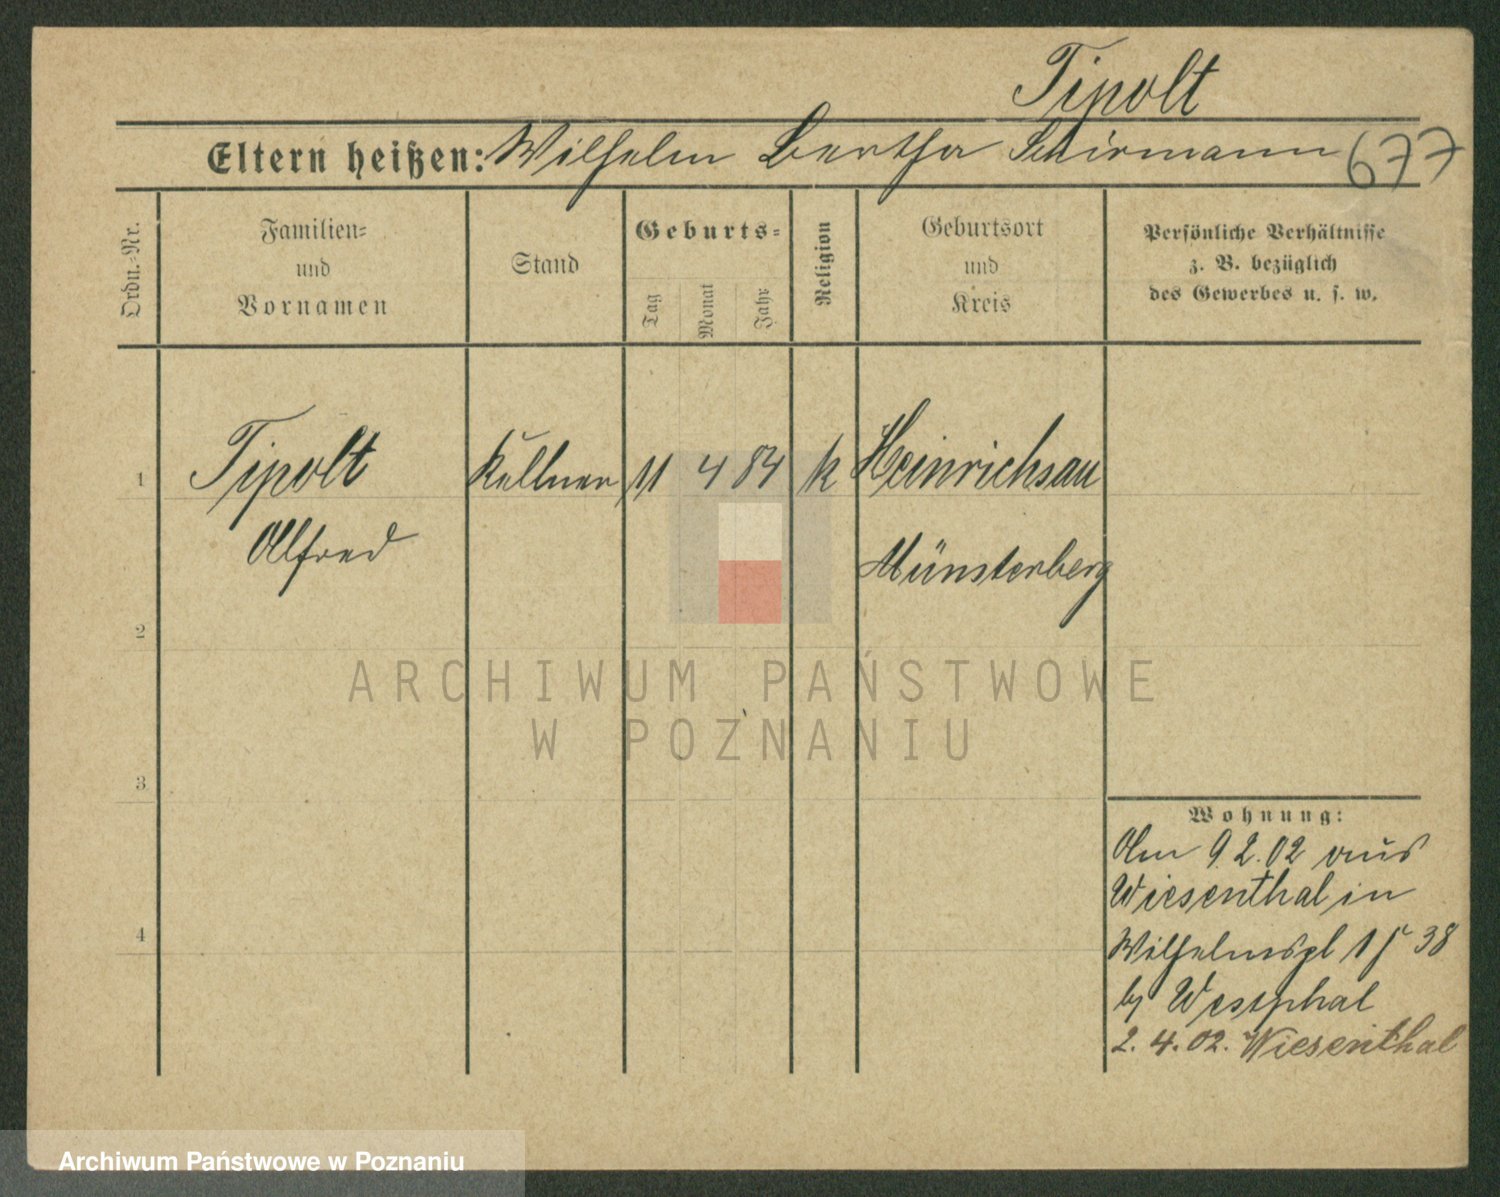 Tipolt
Eltern heißen: Wilhelm Bertha Schirmann 677
Ordn.-Nr.
Familien-
und
Vornamen
Stand
Geburts-
Tag
Monat
Jahr
Religion
Geburtsort
und
Kreis
Persönliche Verhältnisse
z. B. bezüglich
des Gewerbes u. s. w.
1 Tipolt Kellner 11 4 84 k Heinrichsau
Alfred Münsterberg
2
3
4
Wohnung:
Am 9.2.02 aus
Wiesenthal in
Wilhelmspl 15 38
by Westphal
2. 4. 02. Wiesenthal
ARCHIWUM PAŃSTWOWE
W POZNANIU
Archiwum Państwowe w Poznaniu